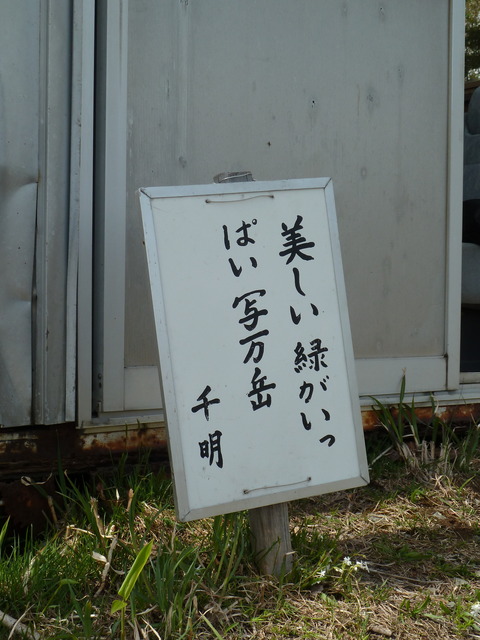 美しい緑がいっ
ぱい写万岳
千明